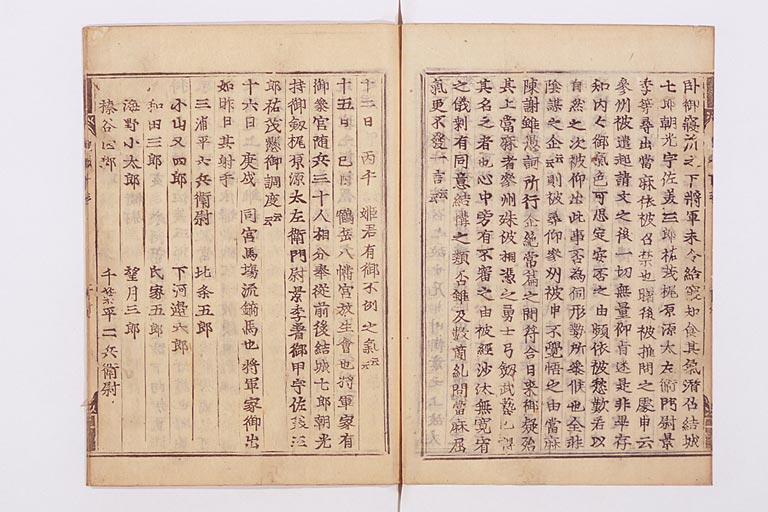 臥御寝所之下將軍未令給寝知食其氣潜召結城
七郎朝光宇佐美三郎祐茂梶原源太左衛門尉景
季等尋出當麻依被召禁也曙後被推問之處申云
參州被進起請文之後一切無重御旨迷是非畢存
知内々御氣色可思定安否之由頻依被愁歎若以
自然之次被仰出此事否為伺形勢所參候也全非
陰謀之企云則被尋仰參州被申不覺悟之由當麻
陳謝雖愚詞所行企絶當篇之間符合日來御疑殆
其上當麻者參州殊被相憑之勇士弓劔武藝已得
其名之者也心中旁有不審之由被經沙汰無寛宥
之儀剰有同意結構之類否雖及數箇糺問當麻屈
氣更不發一言云
十三日 丙午 姫君有御不例之氣云
十五日 己酉 鶴岳八幡宮放生會也將軍家有
御參宮随兵三十人相分奉從前後結城七郎朝光
持御劔梶原源太左衛門尉景季着御甲宇佐美三
郎祐茂懸御調度云
十六日 庚戌 同宮馬場流鏑馬也將軍家御出
如昨日其射手
三浦平六兵衛尉 北条五郎
小山又四郎 下河邊六郎
和田三郎 氏家五郎
海野小太郎 望月三郎
榛谷四郎 千葉平二兵衛尉